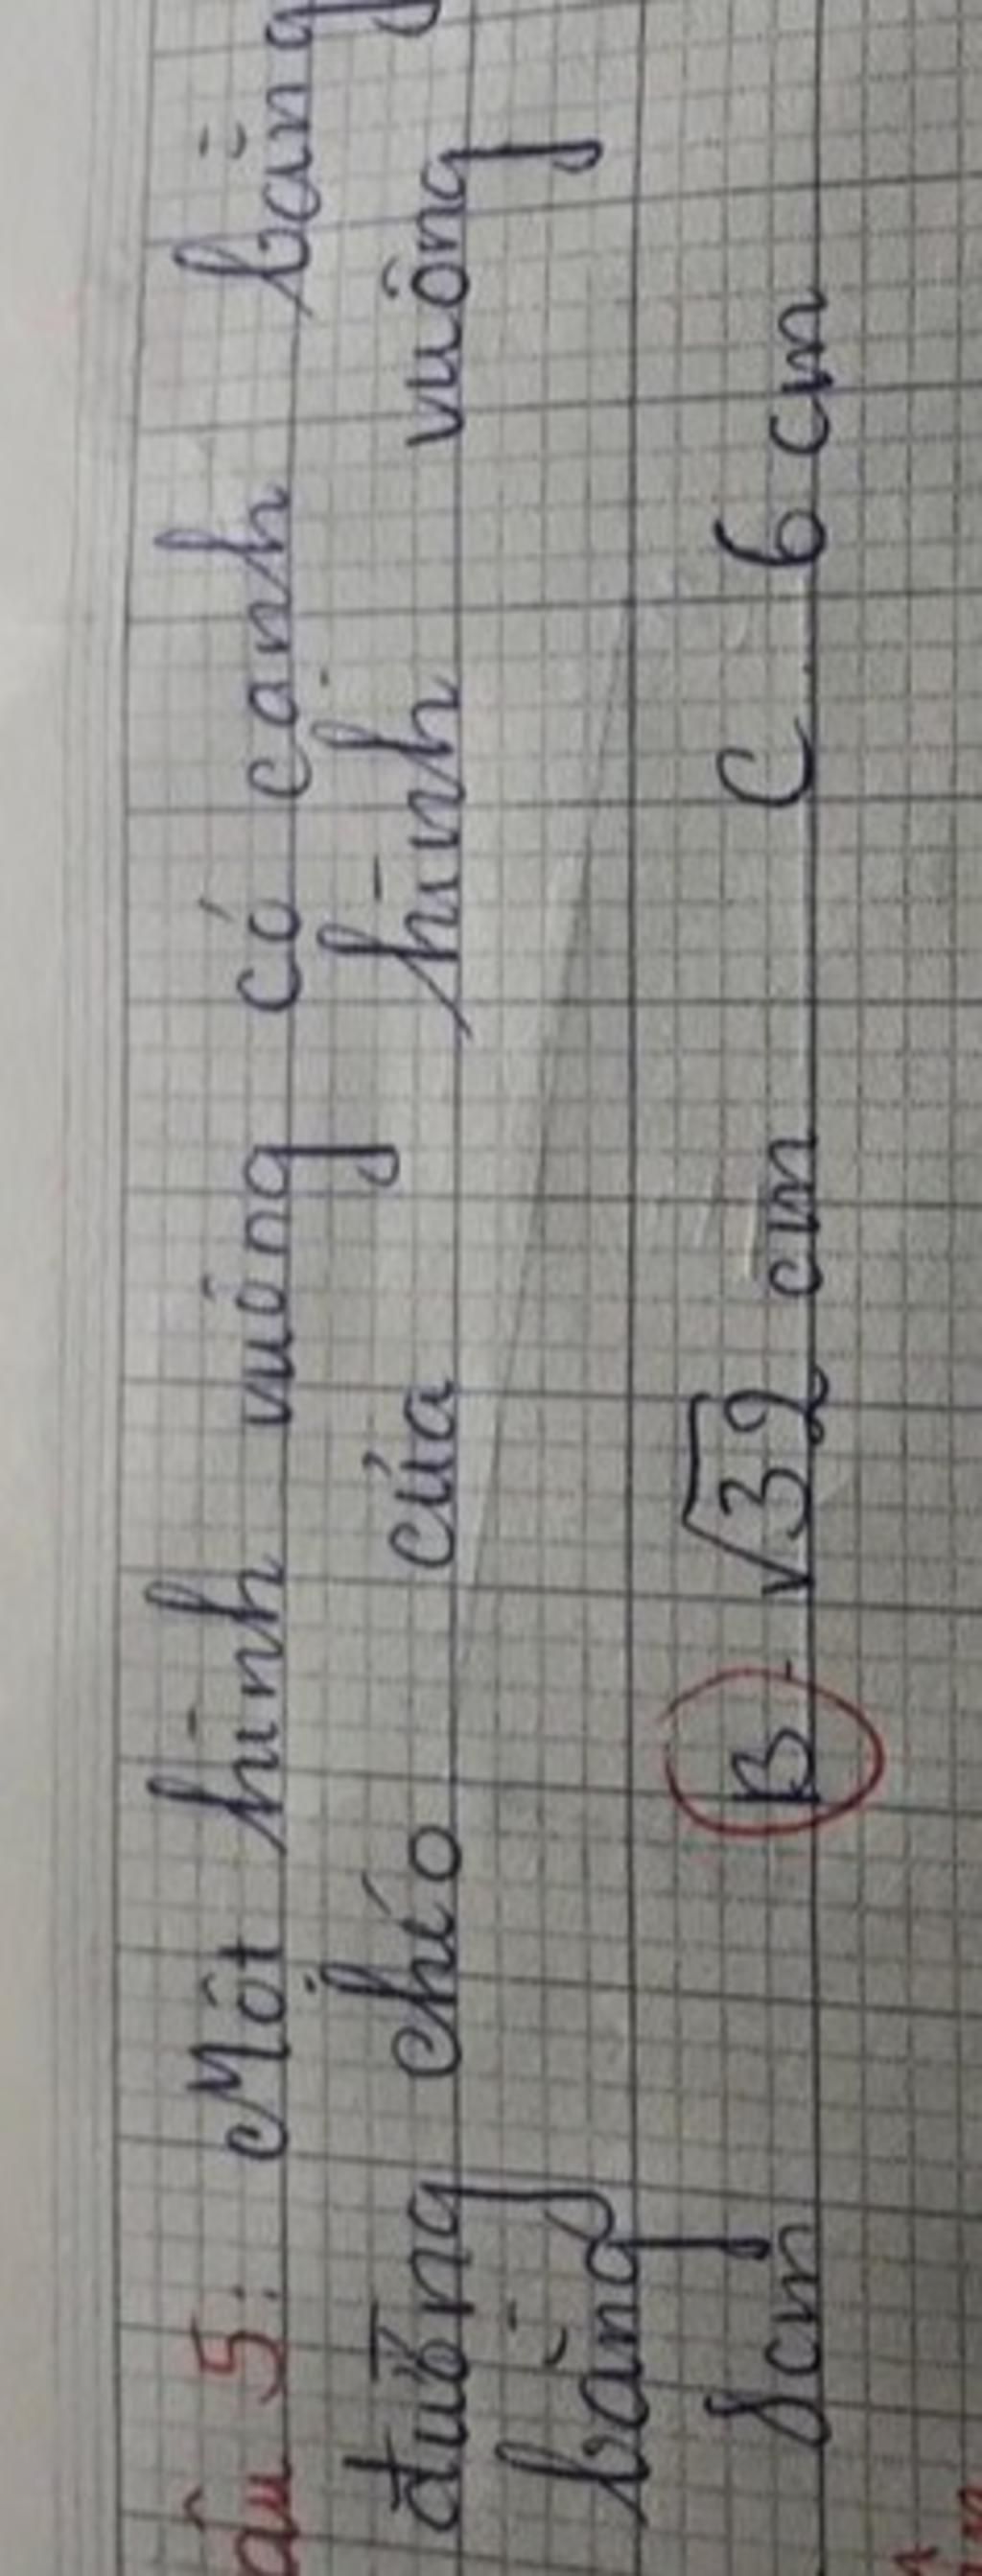 âu 5: Một hình vuông có cạnh bằng
đường chéo của hình vuông
bằng
8cm B. √32 cm C. 6 cm